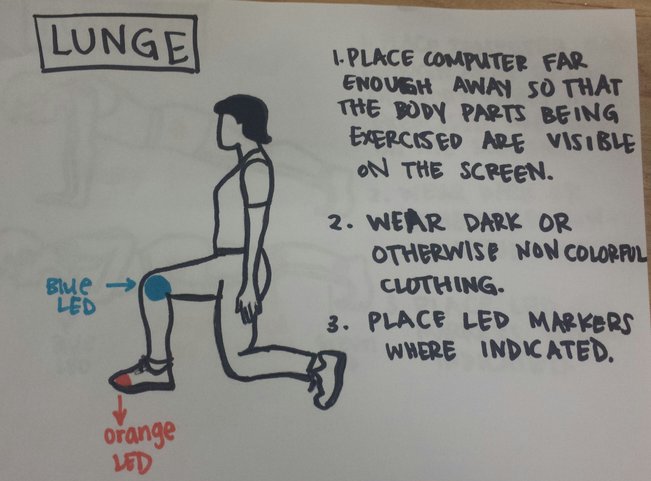 LUNGE
1. PLACE COMPUTER FAR
ENOUGH AWAY SO THAT
THE BODY PARTS BEING
EXERCISED ARE VISIBLE
ON THE SCREEN.
2. WEAR DARK OR
OTHERWISE NONCOLORFUL
CLOTHING.
3. PLACE LED MARKERS
WHERE INDICATED.
Blue
LED
orange
LED